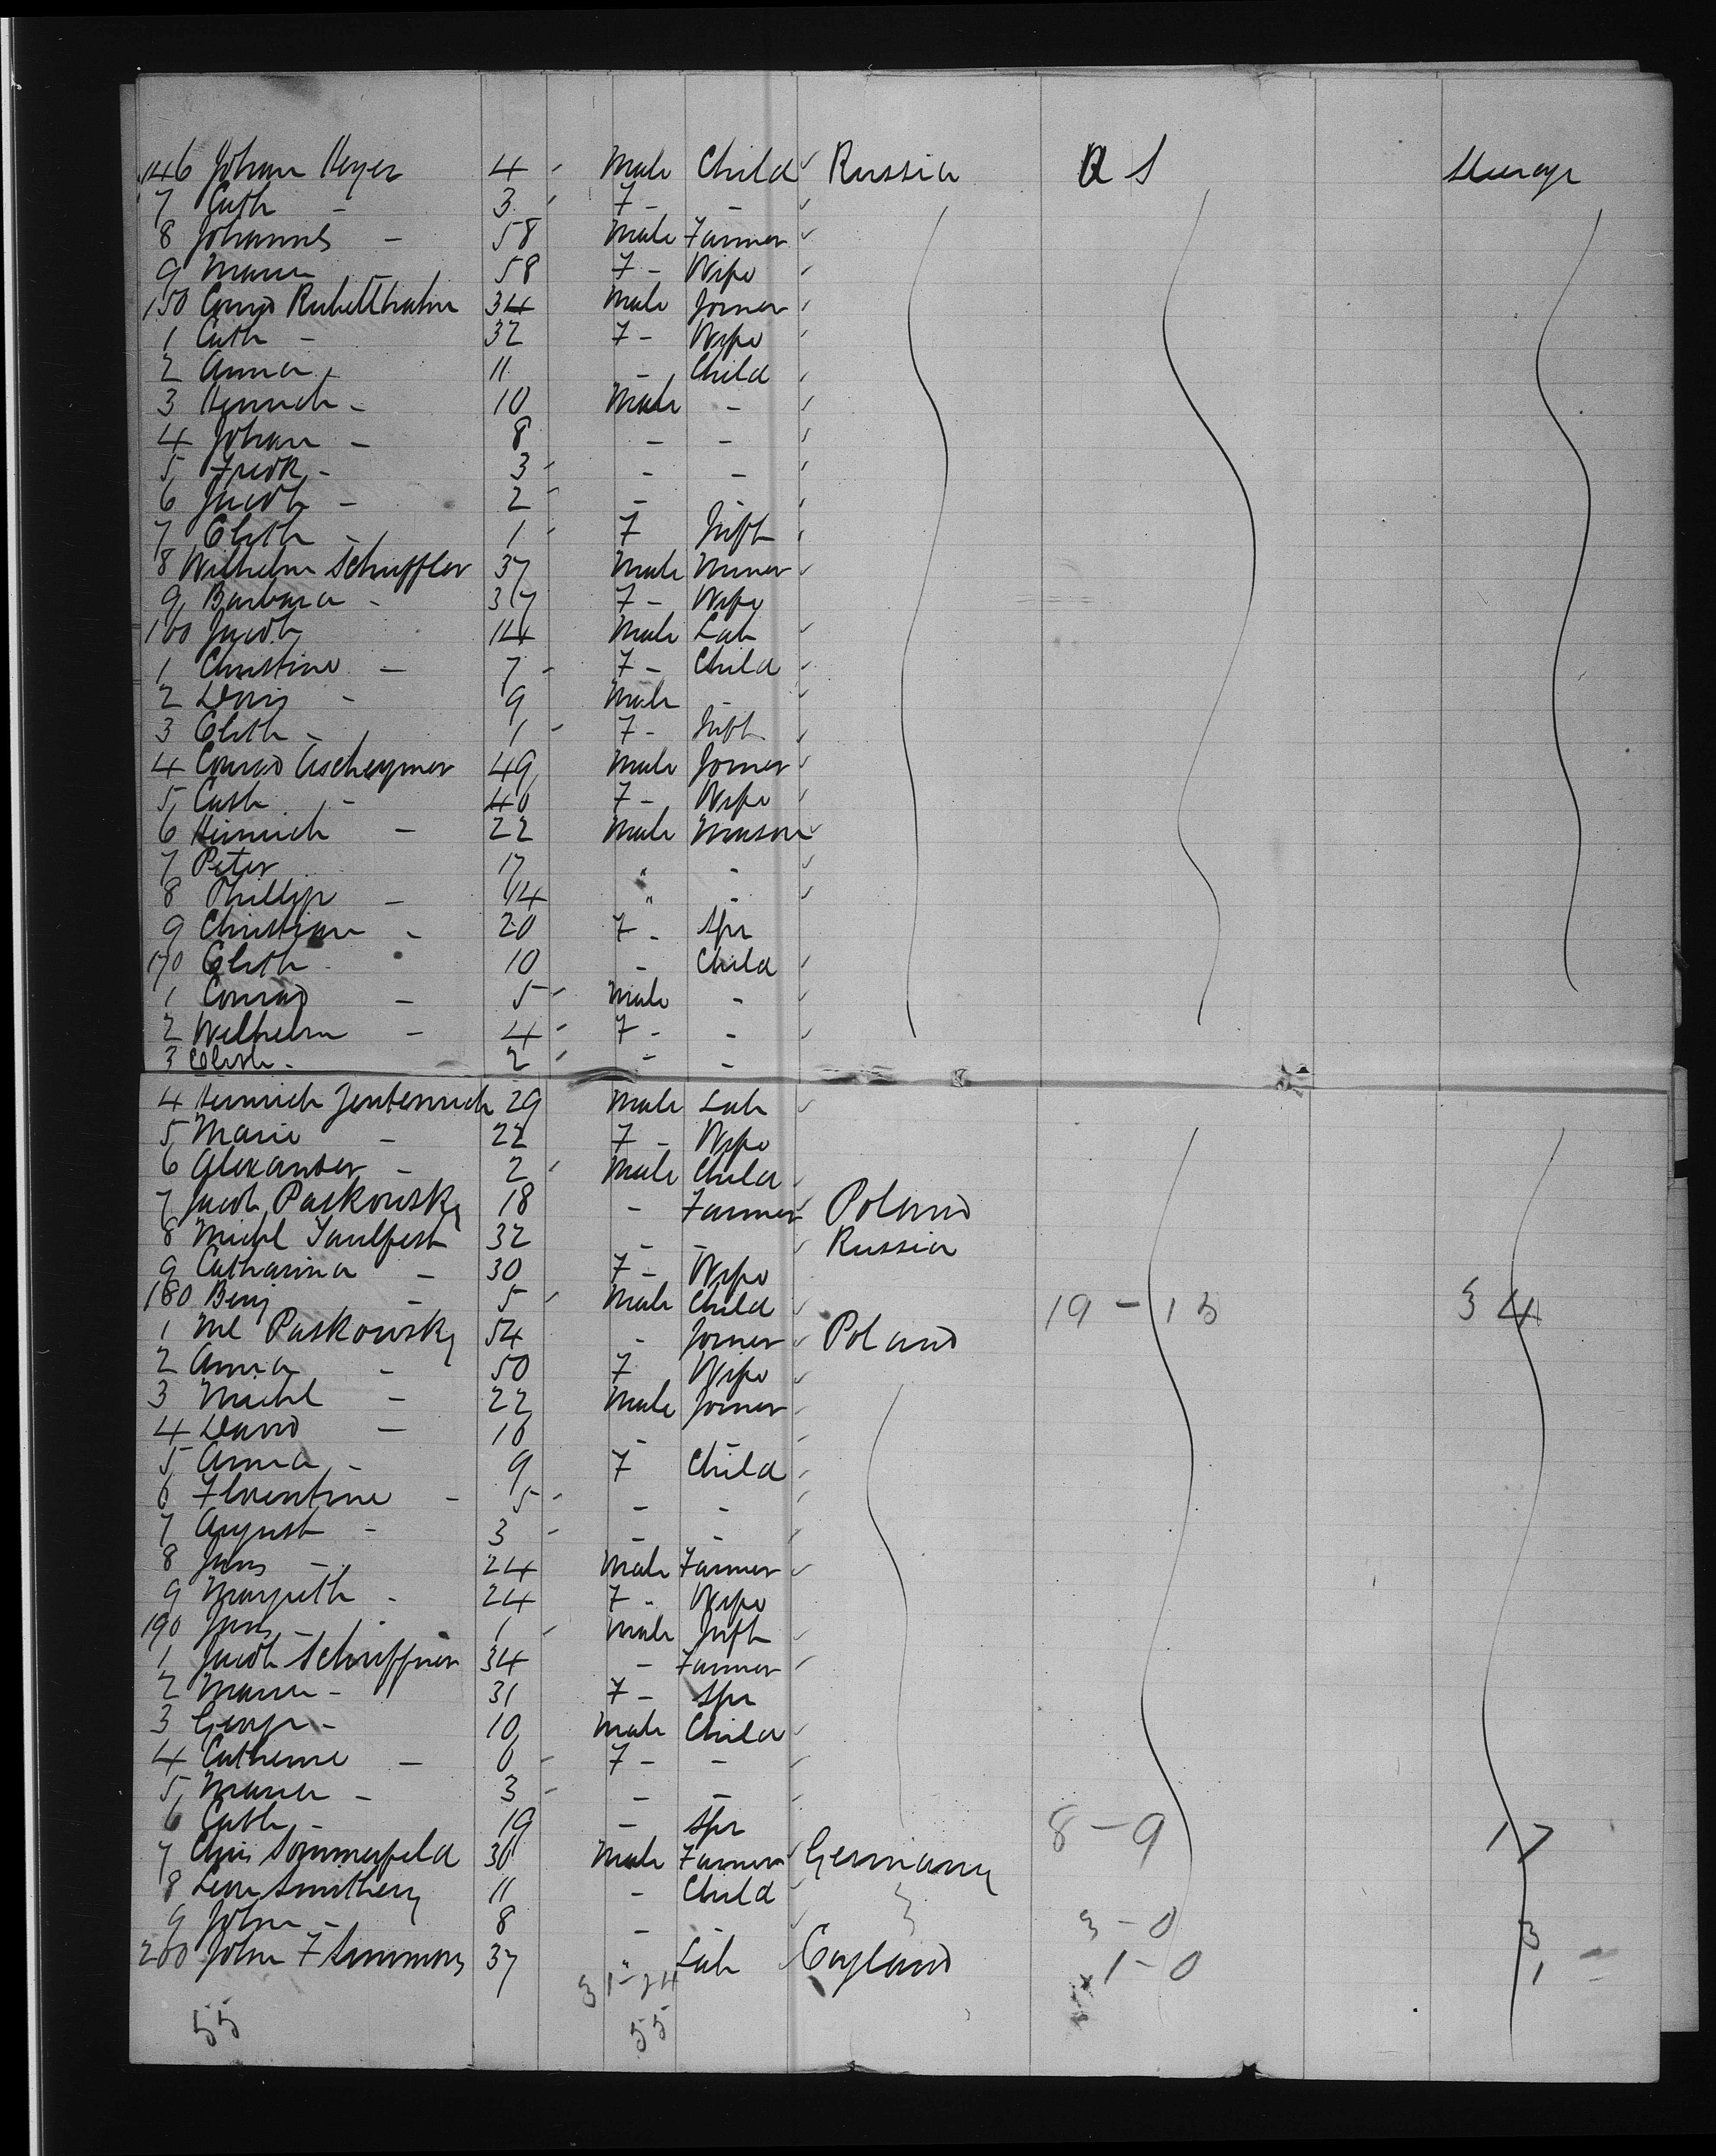 146 Johann Heyer 4 - Male Child Russia U S Steerage
7 Cath - 3 - F - -
8 Johannes - 58 Male Farmer
9 Maria 58 F - Wife
150 Conrad 34 Male Joiner
1 Cath - 32 F - Wife
2 Anna - 11 - Child
3 Heinrich - 10 Male -
4 Johann - 8 - -
5 Fredk - 3 - - -
6 Jacob - 2 - - -
7 Elisth - 1 - F Inft
8 Wilhelm Schuffler 37 Male Miner
9 Barbara - 37 F - Wife
160 Jacob 14 Male Lab
1 Christine - 7 - F - Child
2 Louis - 9 Male -
3 Elisth - 1 - F - Inft
4 Conrad 49 Male Joiner
5 Cath - 40 F - Wife
6 Heinrich - 22 Male Mason
7 Peter 17 " -
8 Phillip - 14 " -
9 Christian - 20 F - Spr
170 Elisth - 10 - Child
1 Conrad - 5 - Male -
2 Wilhelm - 4 - F - -
3 Elisth - 2 - - -
4 Heinrich 29 Male Lab
5 Marie - 22 F - Wife
6 Alexander - 2 - Male Child
7 Jacob Paskowsky 18 - Farmer Poland
8 Michl Faulfest 32 - - Russia
9 Catharina - 30 F - Wife
180 Benj - 5 - Male Child 19 - 15 34
1 Ml Paskowsky 54 - Joiner Poland
2 Anna - 50 F Wife
3 Michl - 22 Male Joiner
4 David - 16 - -
5 Anna - 9 F Child
6 Florentine - 5 - - -
7 August - 3 - - -
8 Jans - 24 Male Farmer
9 Margreth - 24 F - Wife
190 Jans - 1 - Male Inft
1 Jacob Schuffner 34 - Farmer
2 Maria - 31 F - Spr
3 George - 10 Male Child
4 Catherine - 6 - F - -
5 Maria - 3 - - -
6 Cath - 19 - Spr 8 - 9 17
7 Chris Sommerfeld 30 Male Farmer Germany
8 11 - Child
9 John - 8 - 3 - 0 3
200 John F Simmons 37 " Lab England 1 - 0 1
31 - 24
55 55